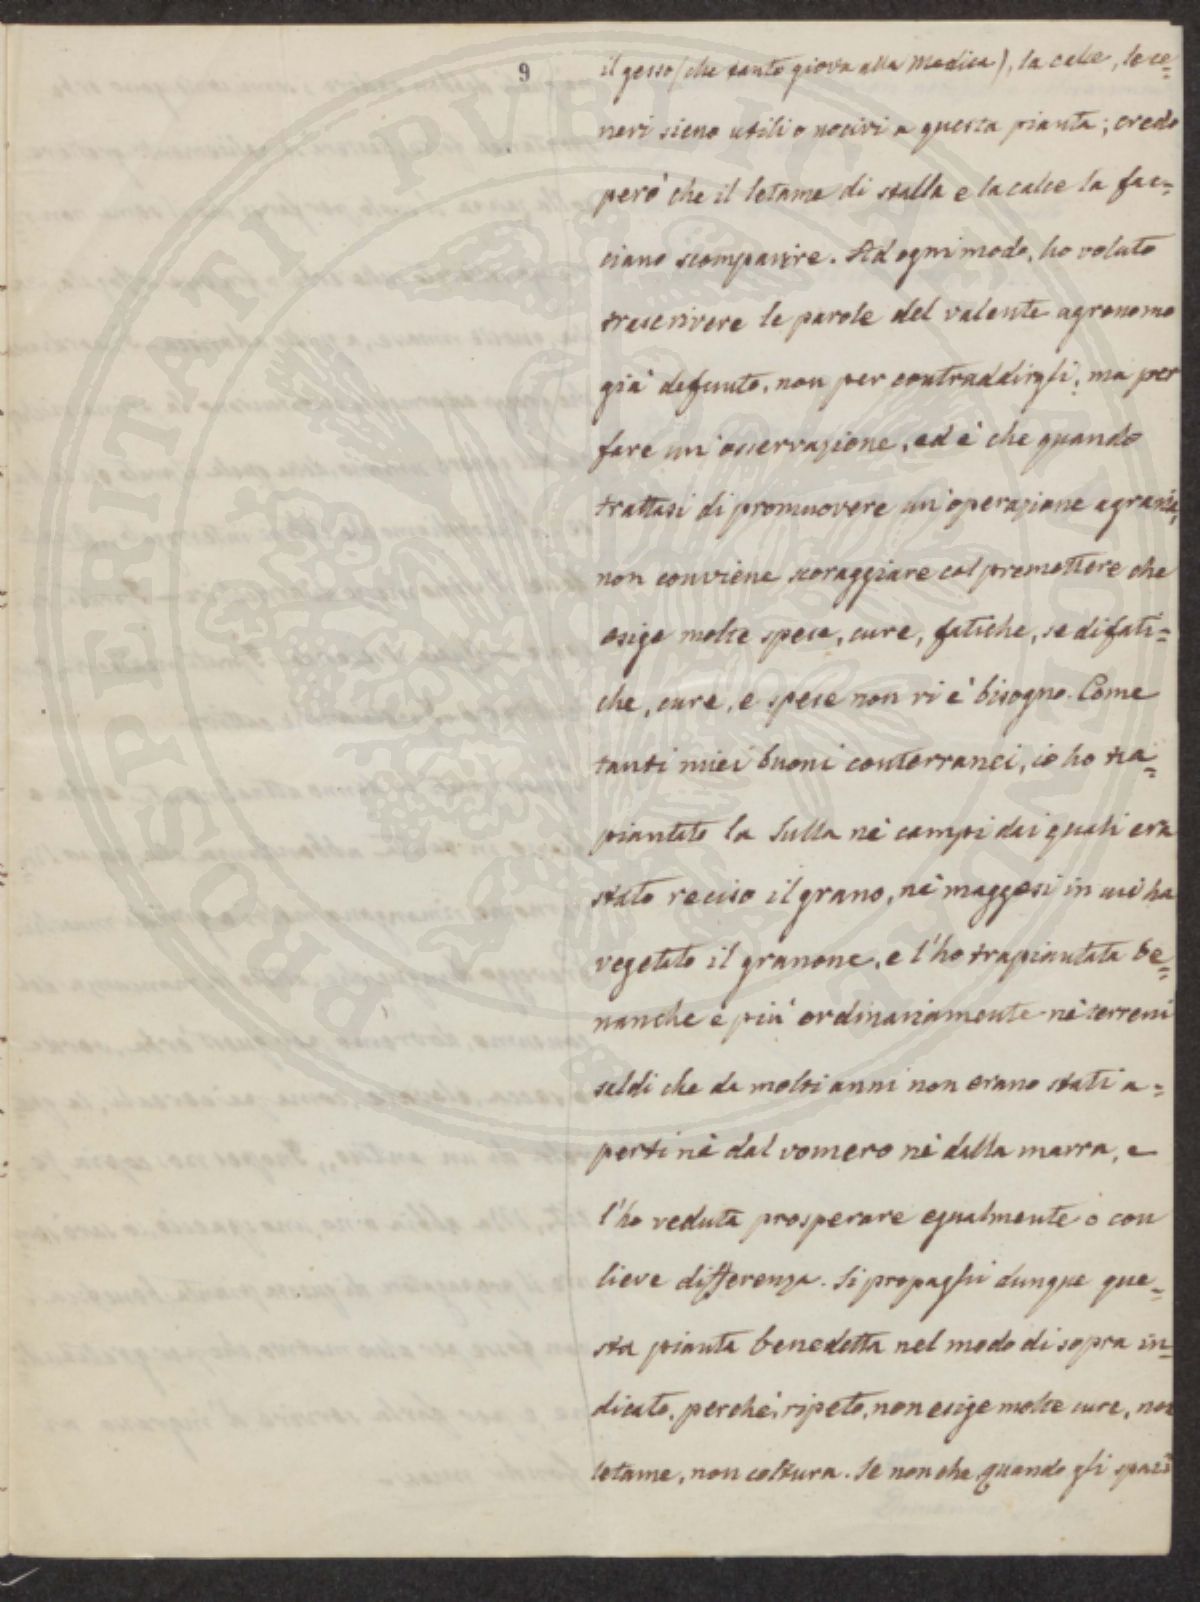 9
il gesso (che tanto giova alla Medica), la calce, le ce=
neri sieno utili o nocivi a questa pianta; credo
però che il letame di stalla e la calce la fac=
ciano scomparire. Ad ogni modo, ho voluto
trascrivere le parole del valente agronomo
già defunto, non per contraddirgli, ma per
fare un'osservazione, ed è che quando
trattasi di promuovere un'operazione agraria,
non conviene scoraggiare col premettere che
esige molte spese, cure, fatiche, se di fati=
che, cure, e spese non vi è bisogno. Come
tanti miei buoni conterranei, io ho tra=
piantato la Sulla nè campi dai quali era
stato reciso il grano, nè maggesi in cui ha
vegetato il granone, e l'ho trapiantata be=
nanche e più ordinariamente nè terreni
saldi che da molti anni non erano stati a=
perti nè dal vomero nè dalla marra, e
l'ho veduta prosperare egualmente o con
lieve differenza. Si propaghi dunque que=
sta pianta benedetta nel modo di sopra in=
dicato, perchè, ripeto, non esige molte cure, non
letame, non coltura. Se non che quando gli spazî
PROSPERITATI PUBLICAE AUGENDAE